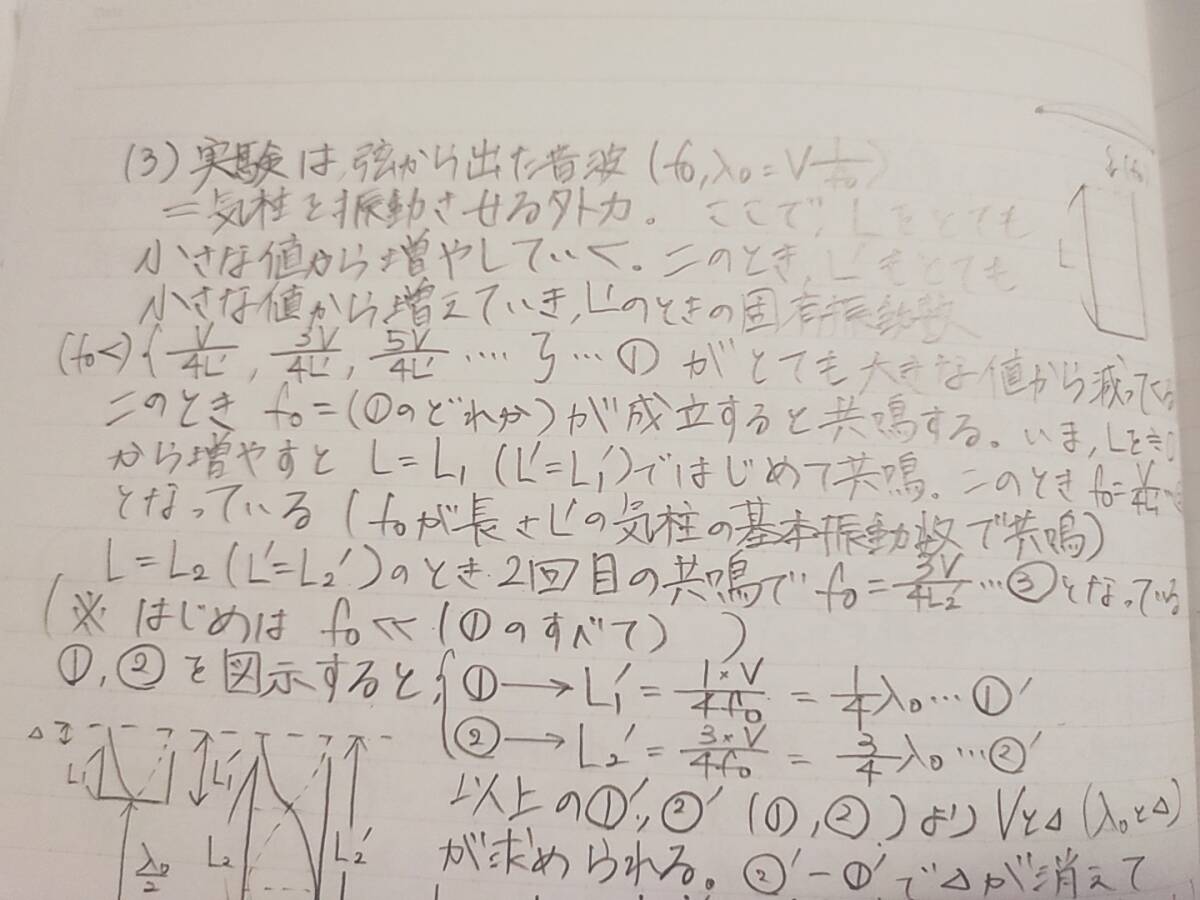 (3) 実験は,弦から出た音波 (f₀, λ₀ = V 1/f₀)
＝気柱を振動させる外力。ここで, Lをとても
小さな値から増やしていく。このとき, L'もとても
小さな値から増えていき, L'のときの固有振動数
(f₀<) { V/4L', 3V/4L', 5V/4L' ‥‥ } … ① がとても大きな値から減ってくる
このとき f₀ = (①のどれか) が成立すると共鳴する。いま, Lを≒0
から増やすと L = L₁ (L' = L₁') ではじめて共鳴。このとき f₀ =
となっている (f₀が長さL'の気柱の基本振動数で共鳴)
L = L₂ (L' = L₂') のとき 2回目の共鳴で f₀ = 3V/4L₂' … ③ となっている
(※ はじめは f₀ << (①のすべて) )
①, ② を図示すると, { ① → L₁' = 1×V/4f₀ = 1/4 λ₀ … ①'
② → L₂' = 3×V/4f₀ = 3/4 λ₀ … ②'
以上の①', ②' (①, ②) より VとΔ (λ₀とΔ)
が求められる。②' − ①' でΔが消えて
Δ
L₁
L₁'
L₂
L₂'
λ₀/2
L